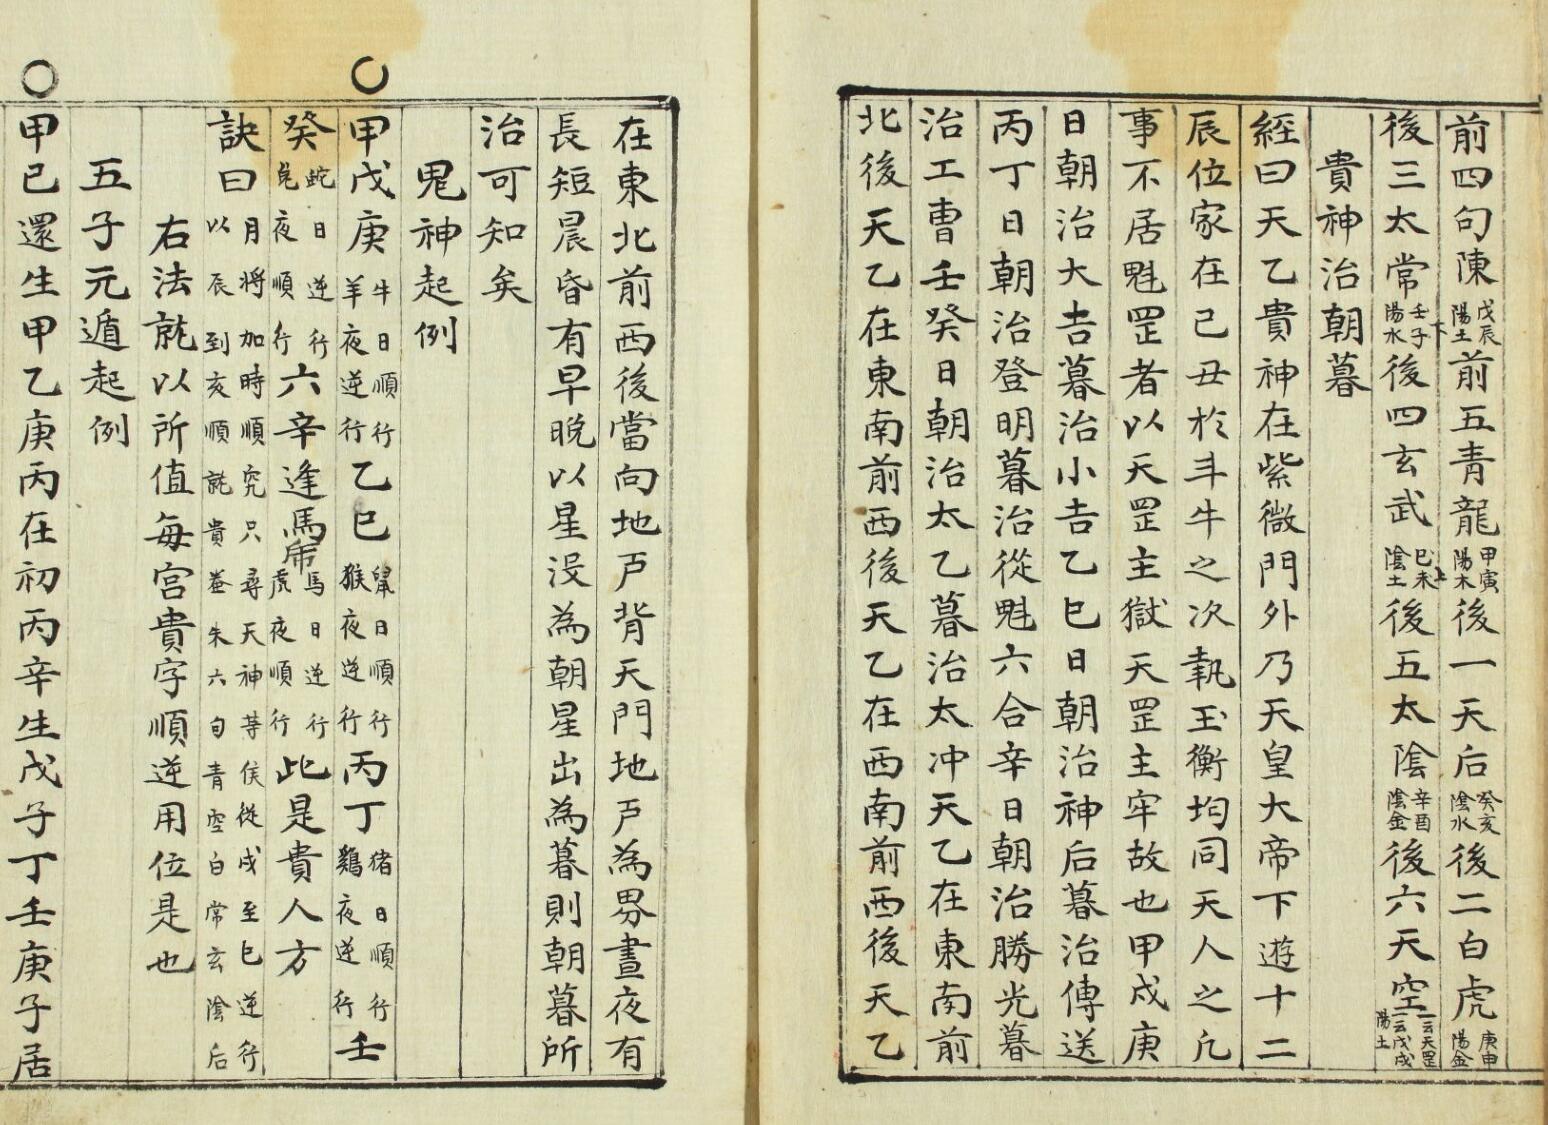 前四句陳戊辰陽土前五青龍甲寅陽木後一天后癸亥陰水後二白虎庚申陽金
後三太常壬子陽水下後四玄武己未陰土上後五太陰辛酉陰金後六天空一云天罡一云戊戌陽土
貴神治朝暮
經曰天乙貴神在紫微門外乃天皇大帝下遊十二
辰位家在己丑於斗牛之次執玉衡均同天人之凢
事不居魁罡者以天罡主獄天罡主牢故也甲戍庚
日朝治大吉暮治小吉乙巳日朝治神后暮治傳送
丙丁日朝治登明暮治從魁六合辛日朝治勝光暮
治工曺壬癸日朝治太乙暮治太冲天乙在東南前
北後天乙在東南前西後天乙在西南前西後天乙
在東北前西後當向地戸背天門地戸為界晝夜有
長短晨昏有早晚以星没為朝星出為暮則朝暮所
治可知矣
鬼神起例
甲戊庚牛日順行羊夜逆行乙巳鼠日順行猴夜逆行丙丁猪日順行鷄夜逆行壬
癸蛇日逆行兎夜順行六辛逢馬虎馬日逆行虎夜順行此是貴人方
訣曰月將加時順究只尋天神等侯從戌至巳逆行以辰到亥順訛貴螣朱六勾青空白常玄陰后
右法訛以所值每宮貴字順逆用位是也
五子元遁起例
甲己還生甲乙庚丙在初丙辛生戊子丁壬庚子居